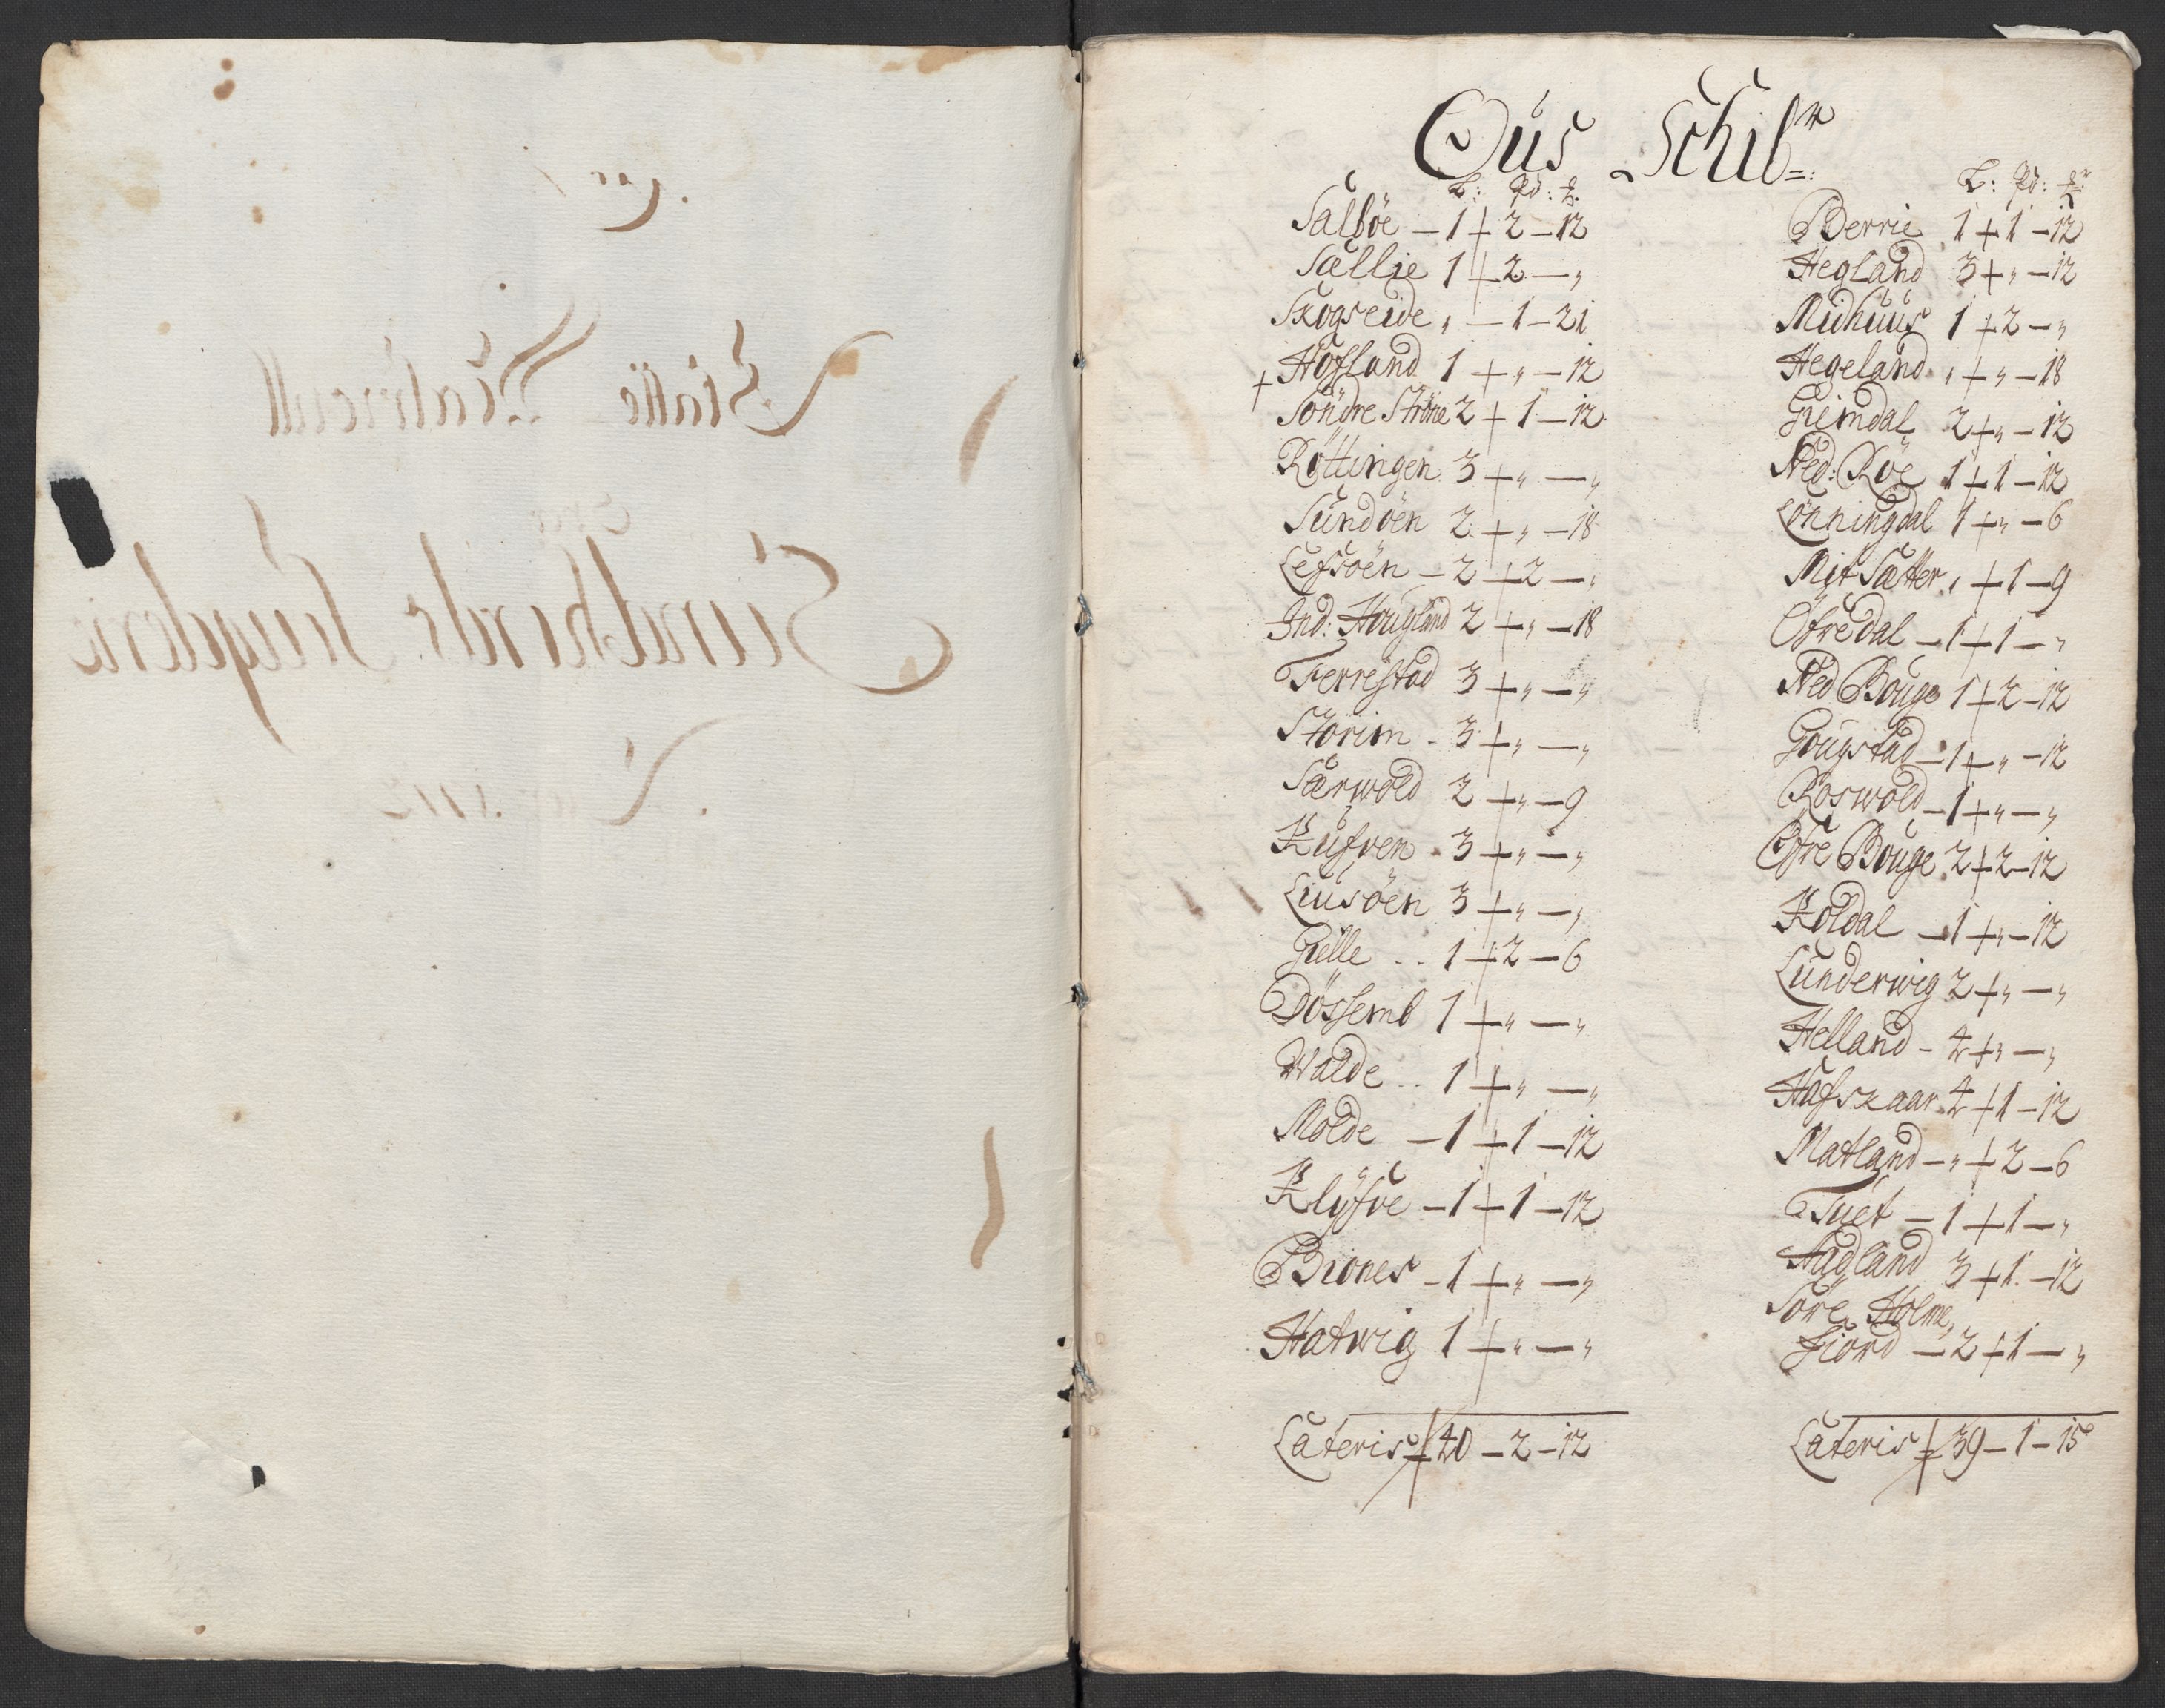 Ous Schib:r
L: Pd: ℔.
Salböe — 1 + 2 — 12
Sællie 1 + 2 — „
Skogseide „ — 1 — 21
Hofland 1 + „ — 12
+ Söndre Ströne 2 + 1 — 12
Röttingen 3 + „ — „
Sundöen 2 + „ — 18
Lefsöen — 2 + 2 — „
Ind: Hougland 2 + „ — 18
Ferrestad 3 + „ — „
Storim - 3 + „ — „
Særwold 2 + „ — 9
Kufven - 3 + „ — „
Liusöen 3 + „ — „
Gielle .. 1 + 2 — 6
Døssemb 1 + „ — „
Walde .. 1 + „ — „
Molde — 1 + 1 — 12
Klÿfve — 1 + 1 — 12
Biones — 1 + „ — „
Hatwig 1 + „ — „
Lateris + 40 — 2 — 12
L: Pd: ℔r
Berrie 1 + 1 — 12
Hegland 3 + „ — 12
Midhuus 1 + 2 — „
Hegeland „ + „ — 18
Giemdal 2 + „ — 12
Ned: Röe 1 + 1 — 12
Lönningdal 1 + „ — 6
Mit Sætter „ + 1 — 9
Öfredal — 1 + 1 — „
Ned Bouge 1 + 2 — 12
Gougstad — 1 + „ — 12
Röswold — 1 + „ — „
Öfre Bouge 2 + 2 — 12
Koldal — 1 + „ — 12
Lunderwig 2 + „ — „
Helland - 4 + „ — „
Hafskaar 4 + 1 — 12
Matland — „ + 2 — 6
Tuet — 1 + 1 — „
Hadland 3 + 1 — 12
Söre Holme
fiord — 2 + 1 — „
Lateris + 39 — 1 — 15